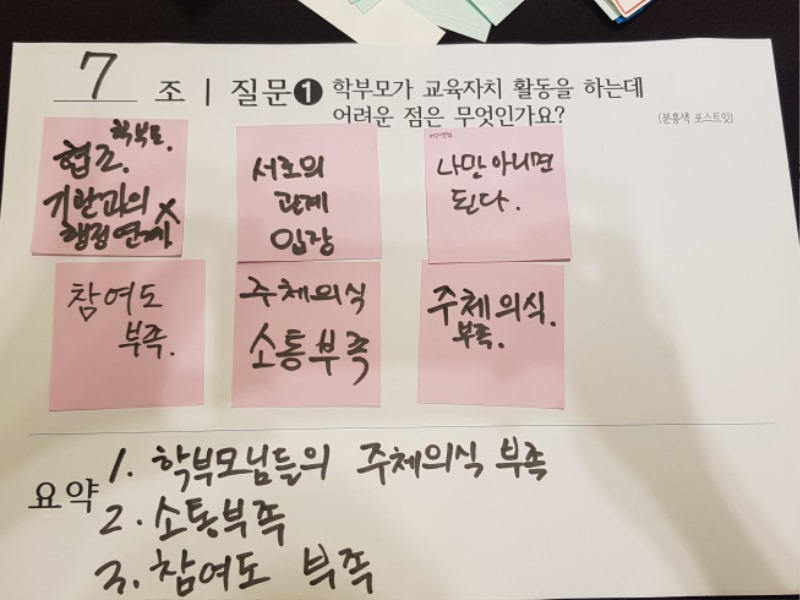 7 조 | 질문❶ 학부모가 교육자치 활동을 하는데
어려운 점은 무엇인가요?
(분홍색 포스트잇)
학부모.
협조.
기관과의 X
행정연계
서로의
관계
입장
나만 아니면
된다.
참여도
부족.
주체의식
소통부족
주체의식.
부족.
요약
1. 학부모님들의 주체의식 부족
2. 소통부족
3. 참여도 부족